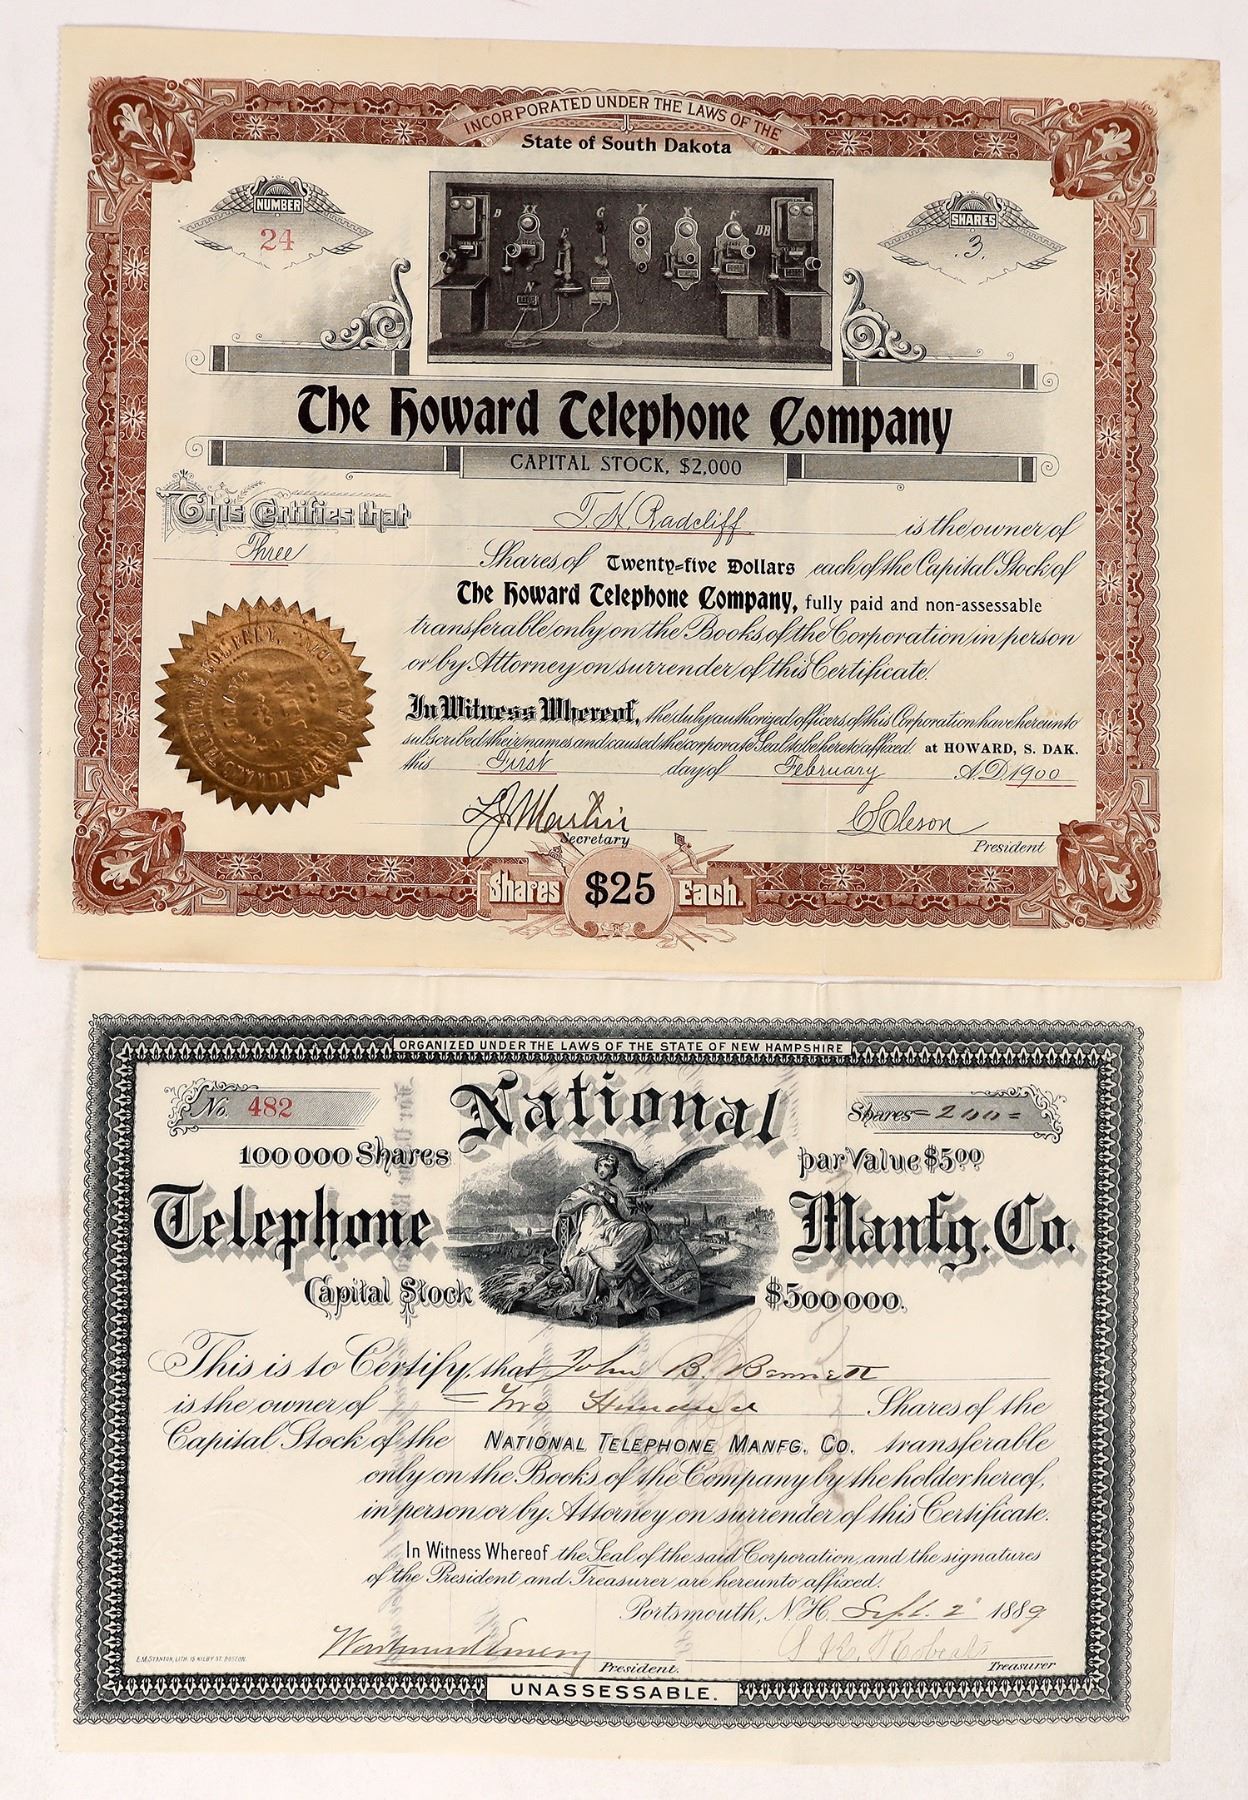 INCORPORATED UNDER THE LAWS OF THE
State of South Dakota
NUMBER
24
SHARES
3.
B XX E G V X F BB
N
The Howard Telephone Company
CAPITAL STOCK, $2,000
This Certifies that T. H. Radcliff is the owner of
Three Shares of Twenty=five Dollars each of the Capital Stock of
The Howard Telephone Company, fully paid and non-assessable
transferable only on the Books of the Corporation in person
or by Attorney on surrender of this Certificate.
In Witness Whereof, the duly authorized officers of this Corporation have hereunto
subscribed their names and caused the corporate Seal to be hereto affixed at HOWARD, S. DAK.
this First day of February A.D. 1900
Secretary
President
Shares $25 Each.
ORGANIZED UNDER THE LAWS OF THE STATE OF NEW HAMPSHIRE
No. 482
National
Shares = 200 =
100000 Shares
par Value $5.00
Telephone Manfg. Co.
Capital Stock $500000.
This is to Certify, that John B. Bennett
is the owner of = Two Hundred Shares of the
Capital Stock of the NATIONAL TELEPHONE MANFG. CO. transferable
only on the Books of the Company by the holder hereof,
in person or by Attorney on surrender of this Certificate.
In Witness Whereof the Seal of the said Corporation, and the signatures
of the President and Treasurer are hereunto affixed.
Portsmouth, N.H. Sept. 2 1889
Emery
President.
Roberts
Treasurer
E.M. STANTON, LITH. 15 KILBY ST. BOSTON.
UNASSESSABLE.